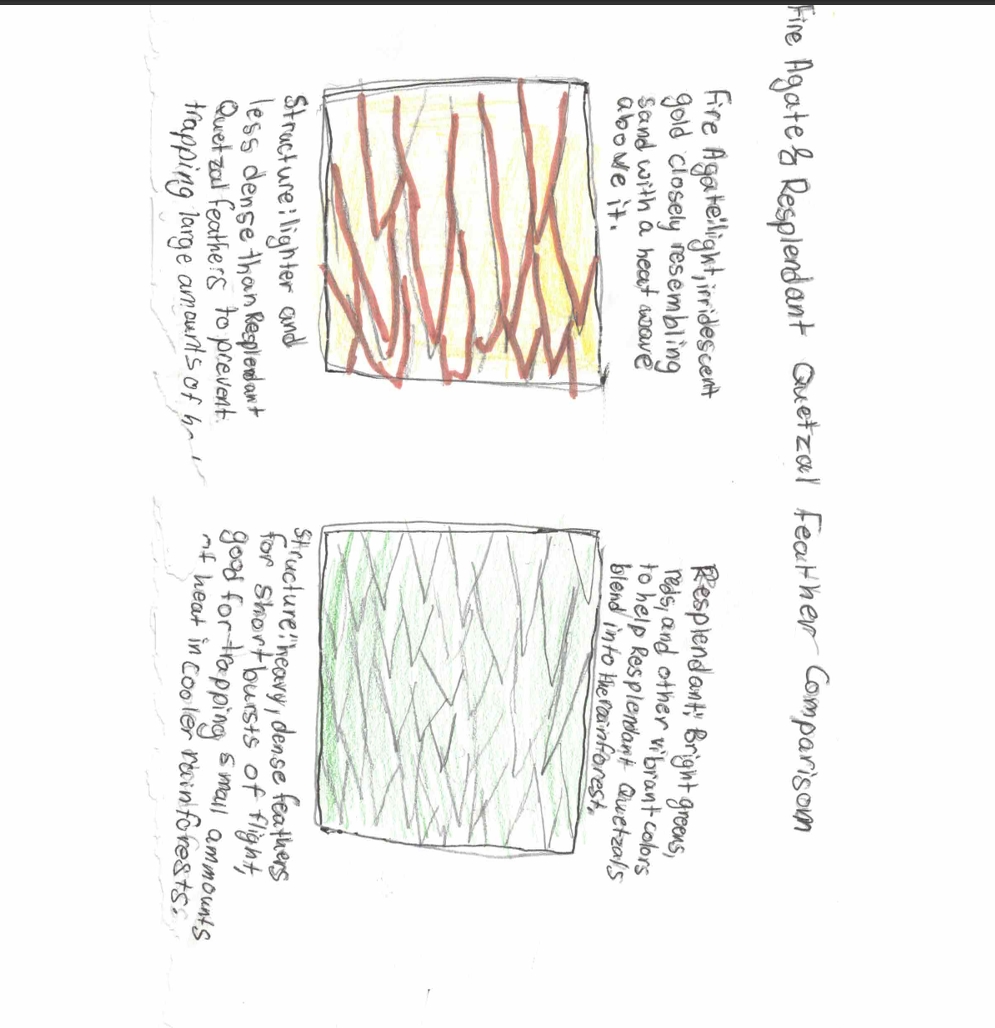 Fire Agate & Resplendant Quetzal Feather Comparison
Fire Agate: light, irridescent
gold closely resembling
sand with a heat wave
above it.
Structure: lighter and
less dense than Resplendant
Quetzal feathers to prevent
trapping large amounts of
Resplendant: Bright greens,
reds, and other vibrant colors
to help Resplendant Quetzals
blend into the rainforest.
Structure: heavy, dense feathers
for short bursts of flight,
good for trapping small ammounts
of heat in cooler rainforests.